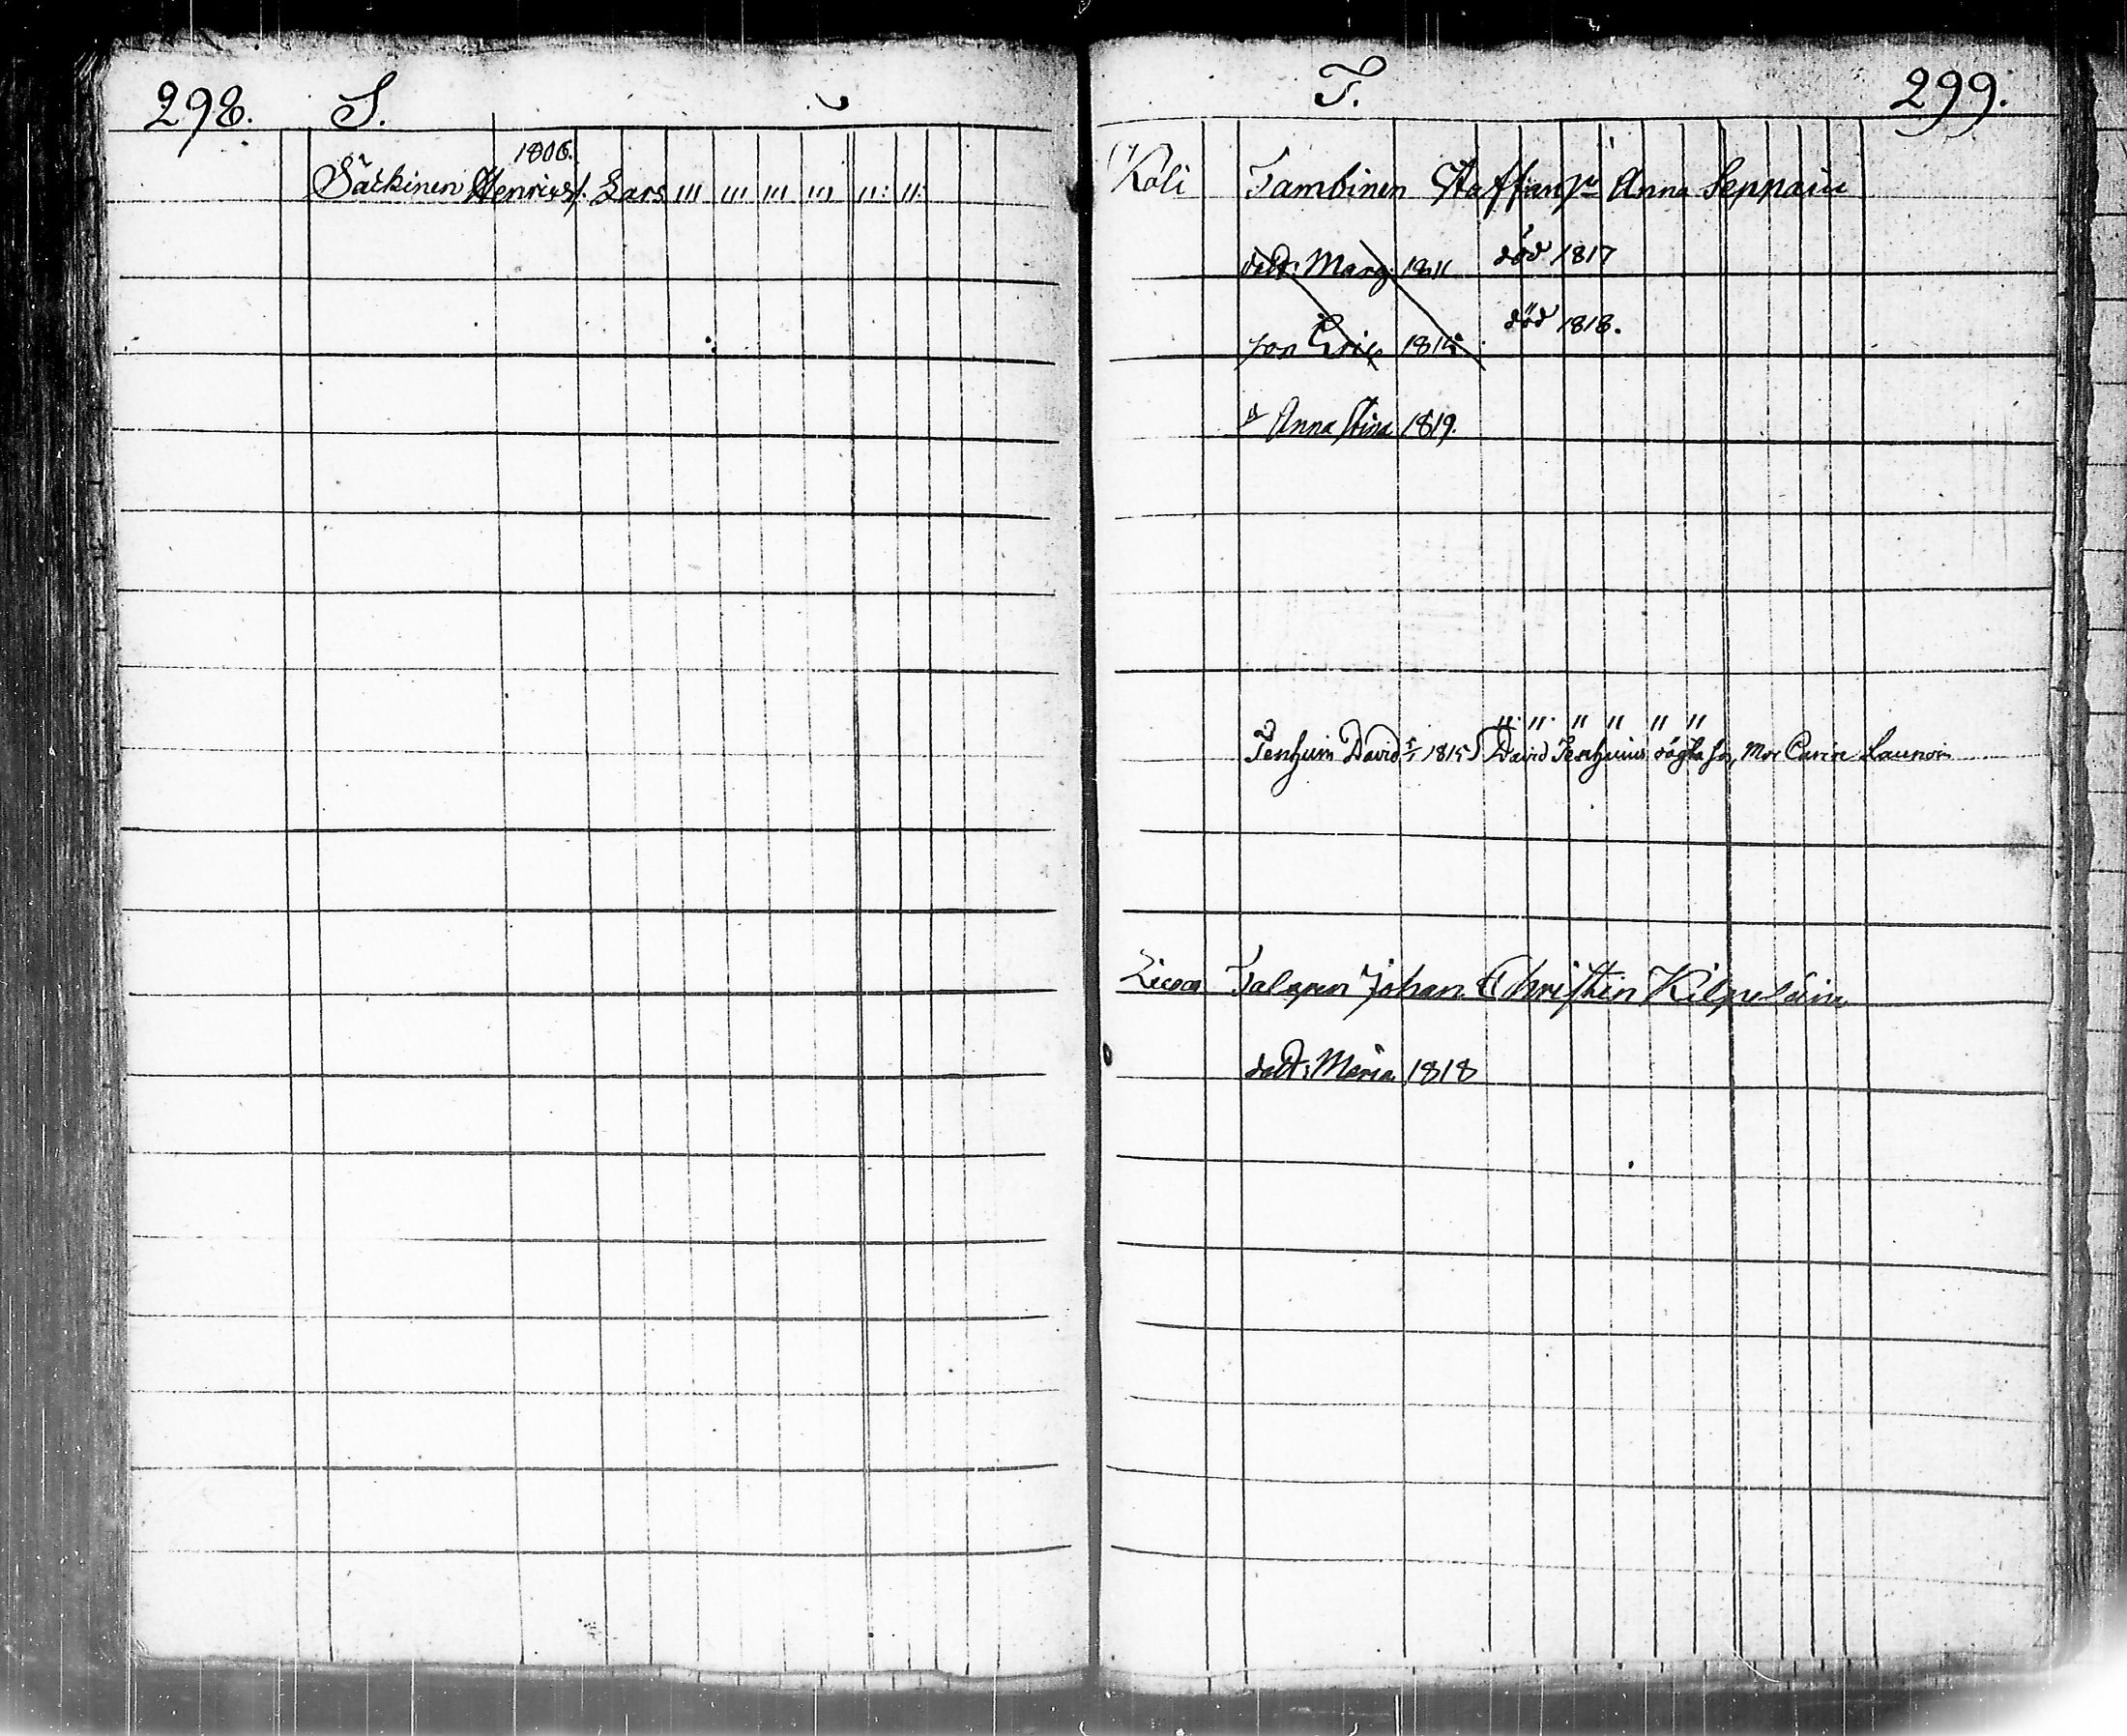 298. S.
1806.
Säckinen Henric f. Lars 111 111 111 111 11: 11:
T. 299.
Koli Tambinen Staffan Anna Seppäin
dott: Marg. 1811 död 1817
son Eric 1815 död 1818.
" Anna Stina 1819.
" " " " " "
Tenhuin David 1815 David Tenhuins oägta son, Mor Carin Launoin
Talapen Johan Christin Kilpeläin
dott: Maria 1818